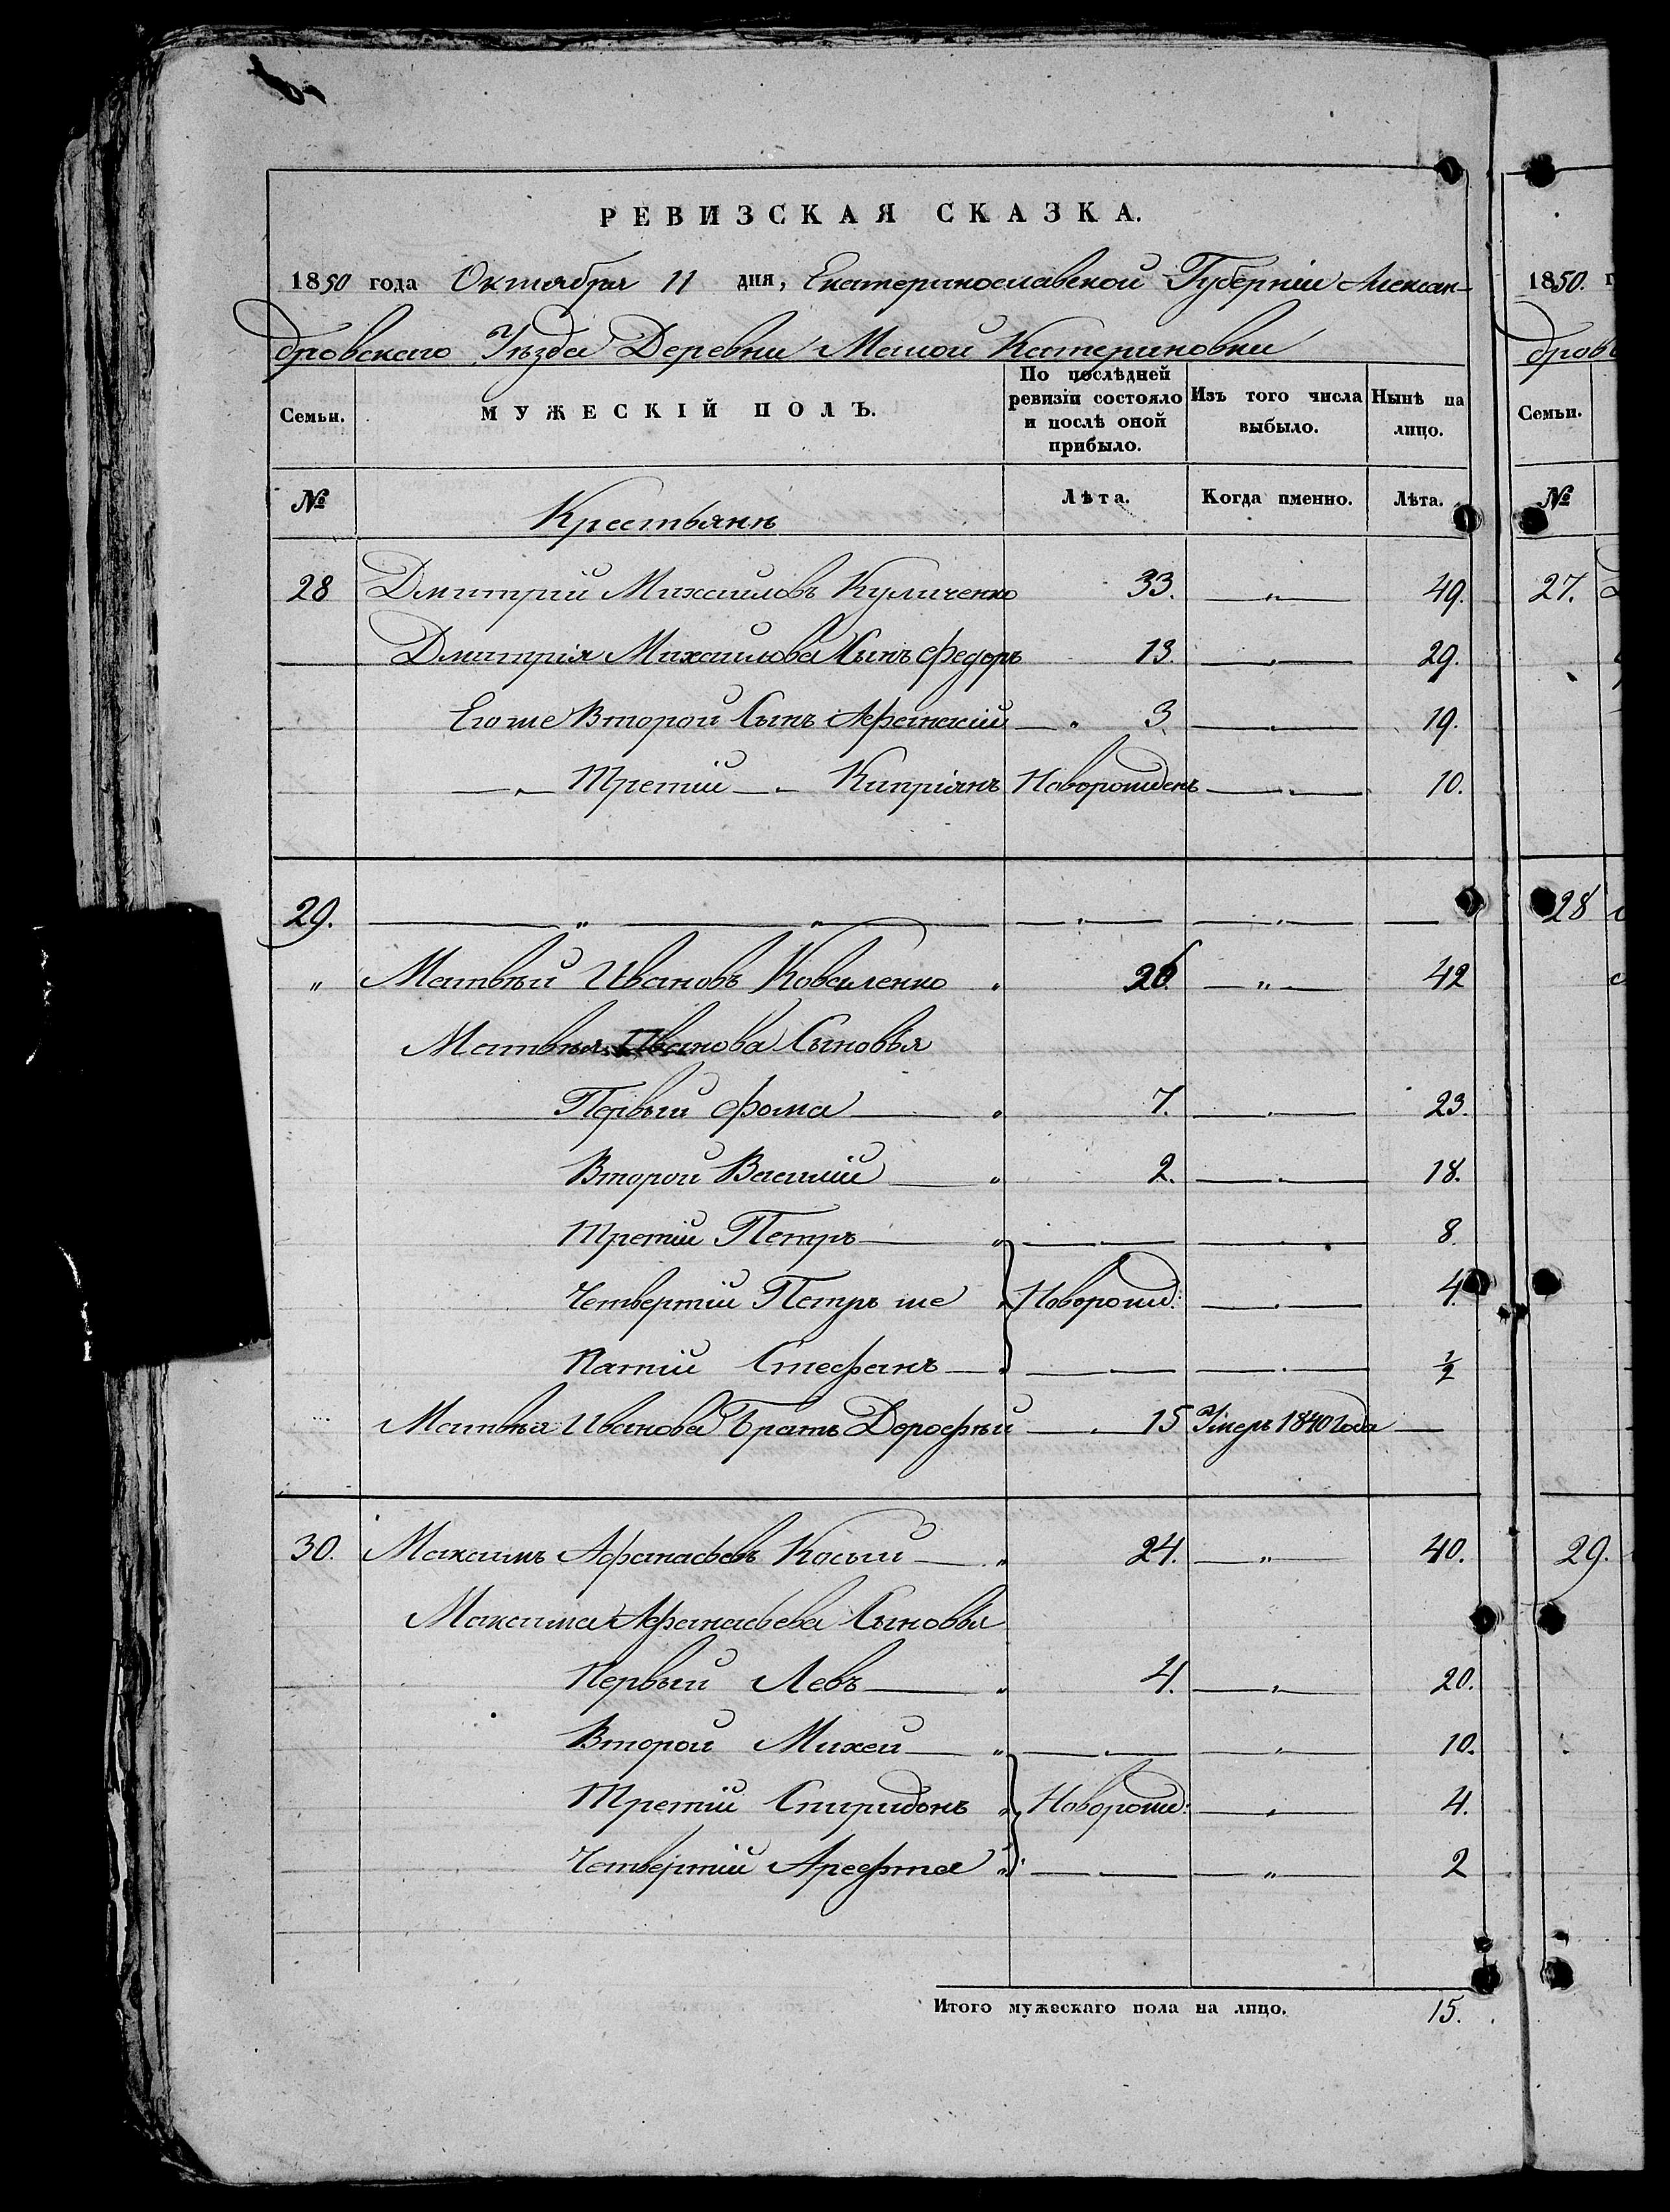 РЕВИЗСКАЯ СКАЗКА.
1850 года Октября 11 дня, Екатеринославской Губерніи Алексан-
дровскаго Уѣзда Деревни Малой Катериновки
Семьи. МУЖЕСКІЙ ПОЛЪ. По послѣдней ревизіи состояло и послѣ оной прибыло. Изъ того числа выбыло. Нынѣ на лицо.
№ Крестьянъ Лѣта. Когда именно. Лѣта.
28 Дмитрій Михайловъ Куличенко 33. — „ — 49.
Дмитрія Михайлова Сынъ Федоръ 13. — „ — 29.
Егоже Второй Сынъ Афанасій — „ 3. — „ — 19.
— „ — Третій — „ Кипріянъ Новорожденъ — „ — 10.
29. — „ — „ — — „ — — „ — —
„ Матвѣй Ивановъ Коваленко „ 26. — „ — 42
Матвѣя Иванова Сыновья
Первый Фома — „ 7. — „ — 23.
Второй Василій — „ 2. — „ — 18.
Третій Петръ — „ — „ — — „ — 8.
Четвертій Петръ же „ Новорожд: — „ — 4.
Пятій Стефанъ — „ — „ — — „ — ½
Матвѣя Иванова Братъ Дорофѣй — „ 15 Умеръ 1840 Года —
30. Максимъ Афанасьевъ Косый — „ 24. — „ — 40.
Максима Афанасьева Сыновья
Первый Левъ — „ 4. — „ — 20.
Второй Михей — „ — „ — — „ — 10.
Третій Спиридонъ „ Новорожд: — „ — 4.
Четвертій Арефта „ — „ — — „ — 2
Итого мужескаго пола на лицо. 15.
1850. г
дров
Семьи.
№
27.
28
29.